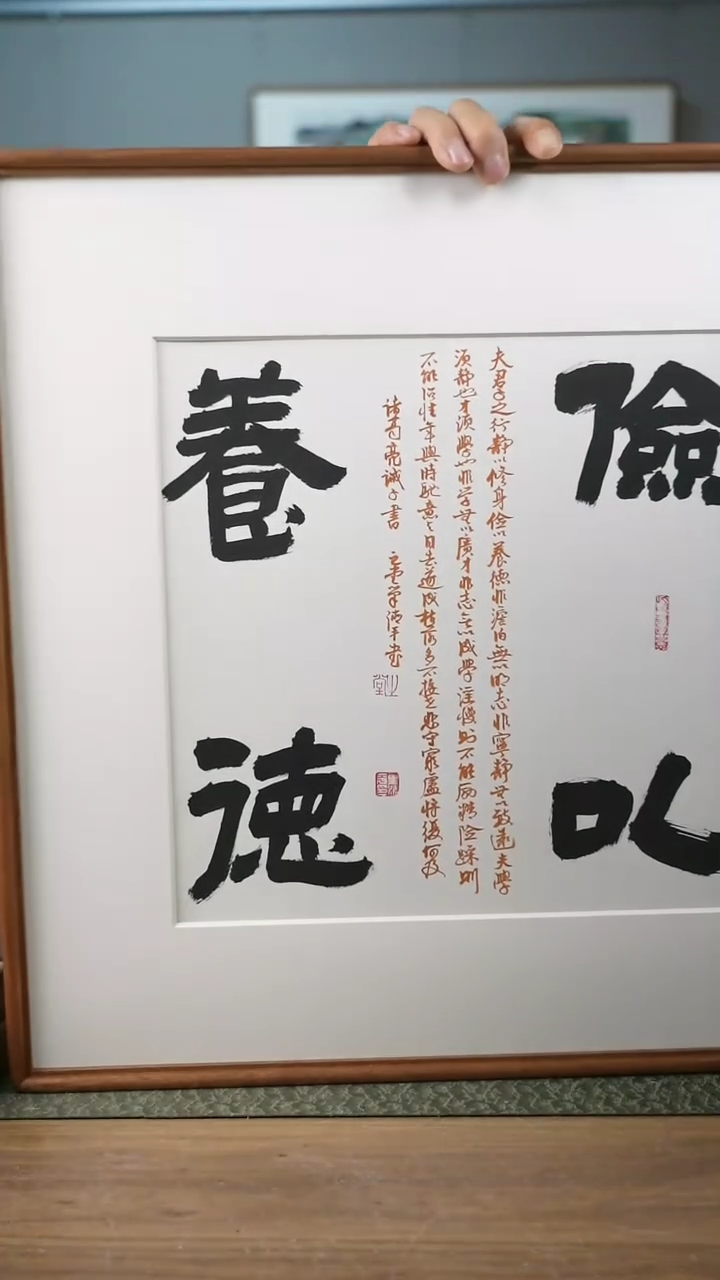 儉以
夫君子之行靜以修身儉以養德非澹泊無以明志非寧靜無以致遠夫學
須靜也才須學也非學無以廣才非志無以成學淫慢則不能勵精險躁則
不能治性年與時馳意與日去遂成枯落多不接世悲守窮廬將復何及
諸葛亮誡子書
養德